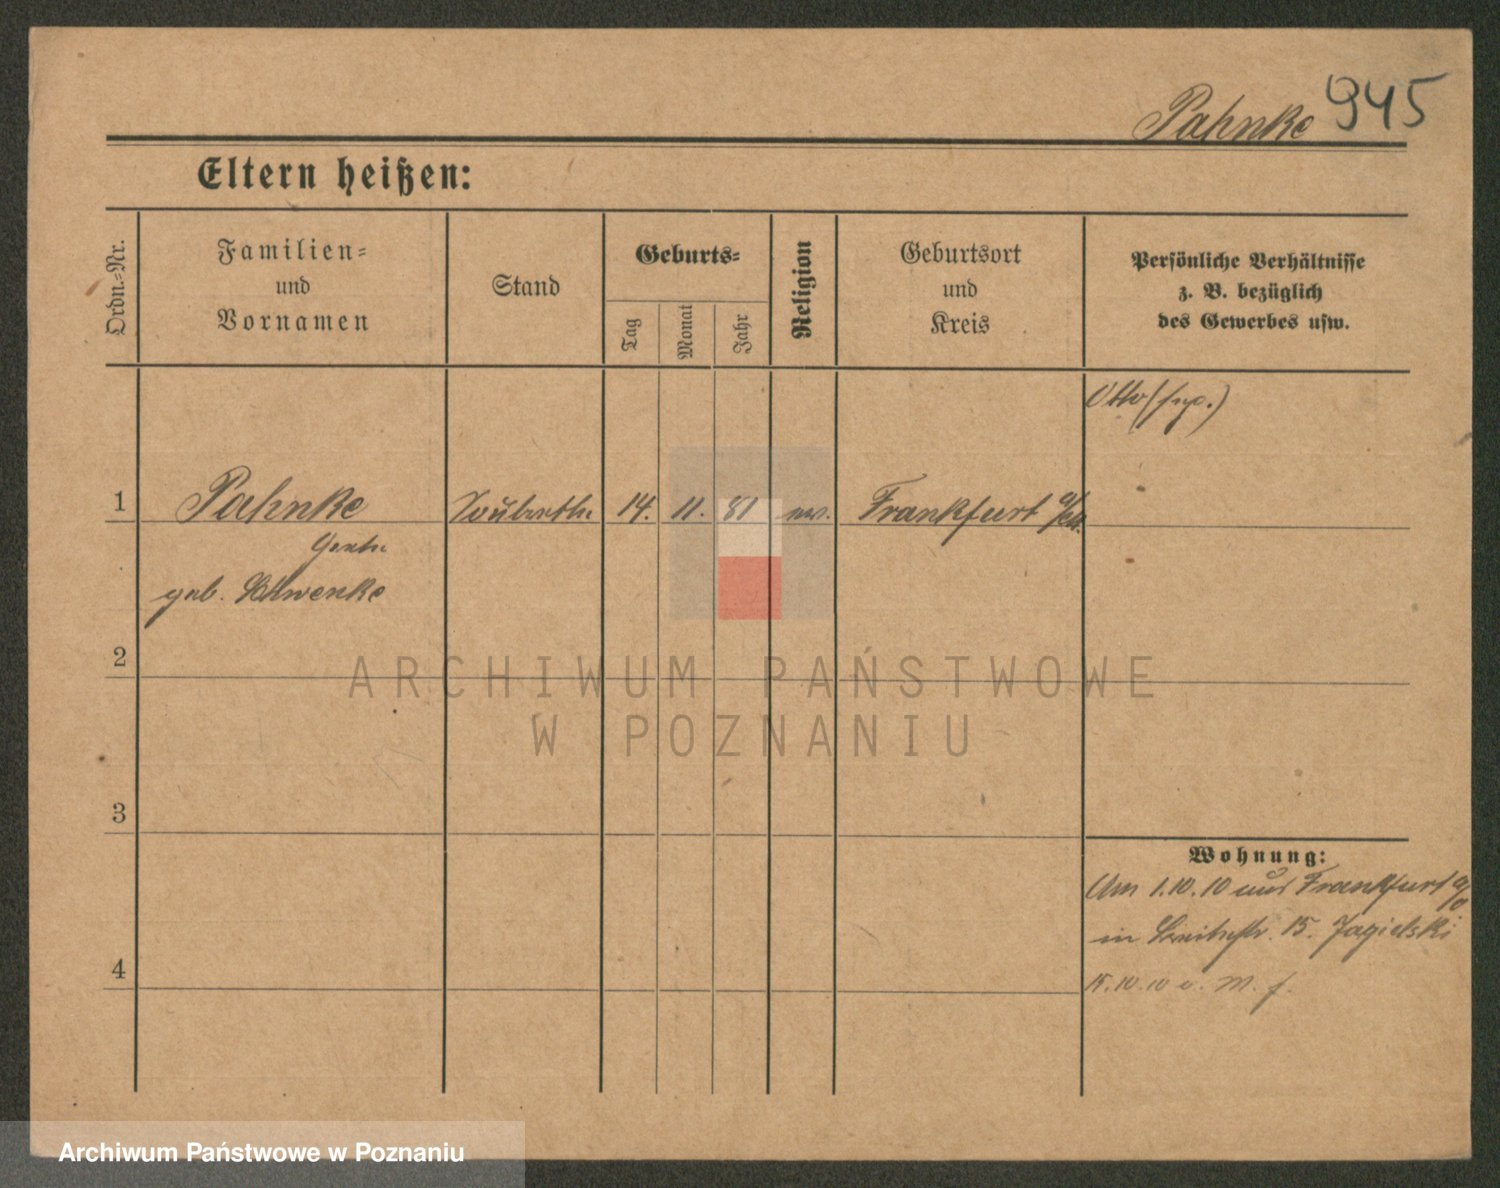 Pahnke 945
Eltern heißen:
Ordn.-Nr.
Familien-
und
Vornamen
Stand
Geburts-
Tag
Monat
Jahr
Religion
Geburtsort
und
Kreis
Persönliche Verhältnisse
z. B. bezüglich
des Gewerbes usw.
Otto (sep.)
1 Pahnke 14. 11. 81 ev. Frankfurt a/Od.
geb. Schwenke
2
3
4
Wohnung:
Am 1.10.10 aus Frankfurt a/O
in Breitestr. 15. Jagielski
15.10.10 v. M. f.
ARCHIWUM PAŃSTWOWE
W POZNANIU
Archiwum Państwowe w Poznaniu